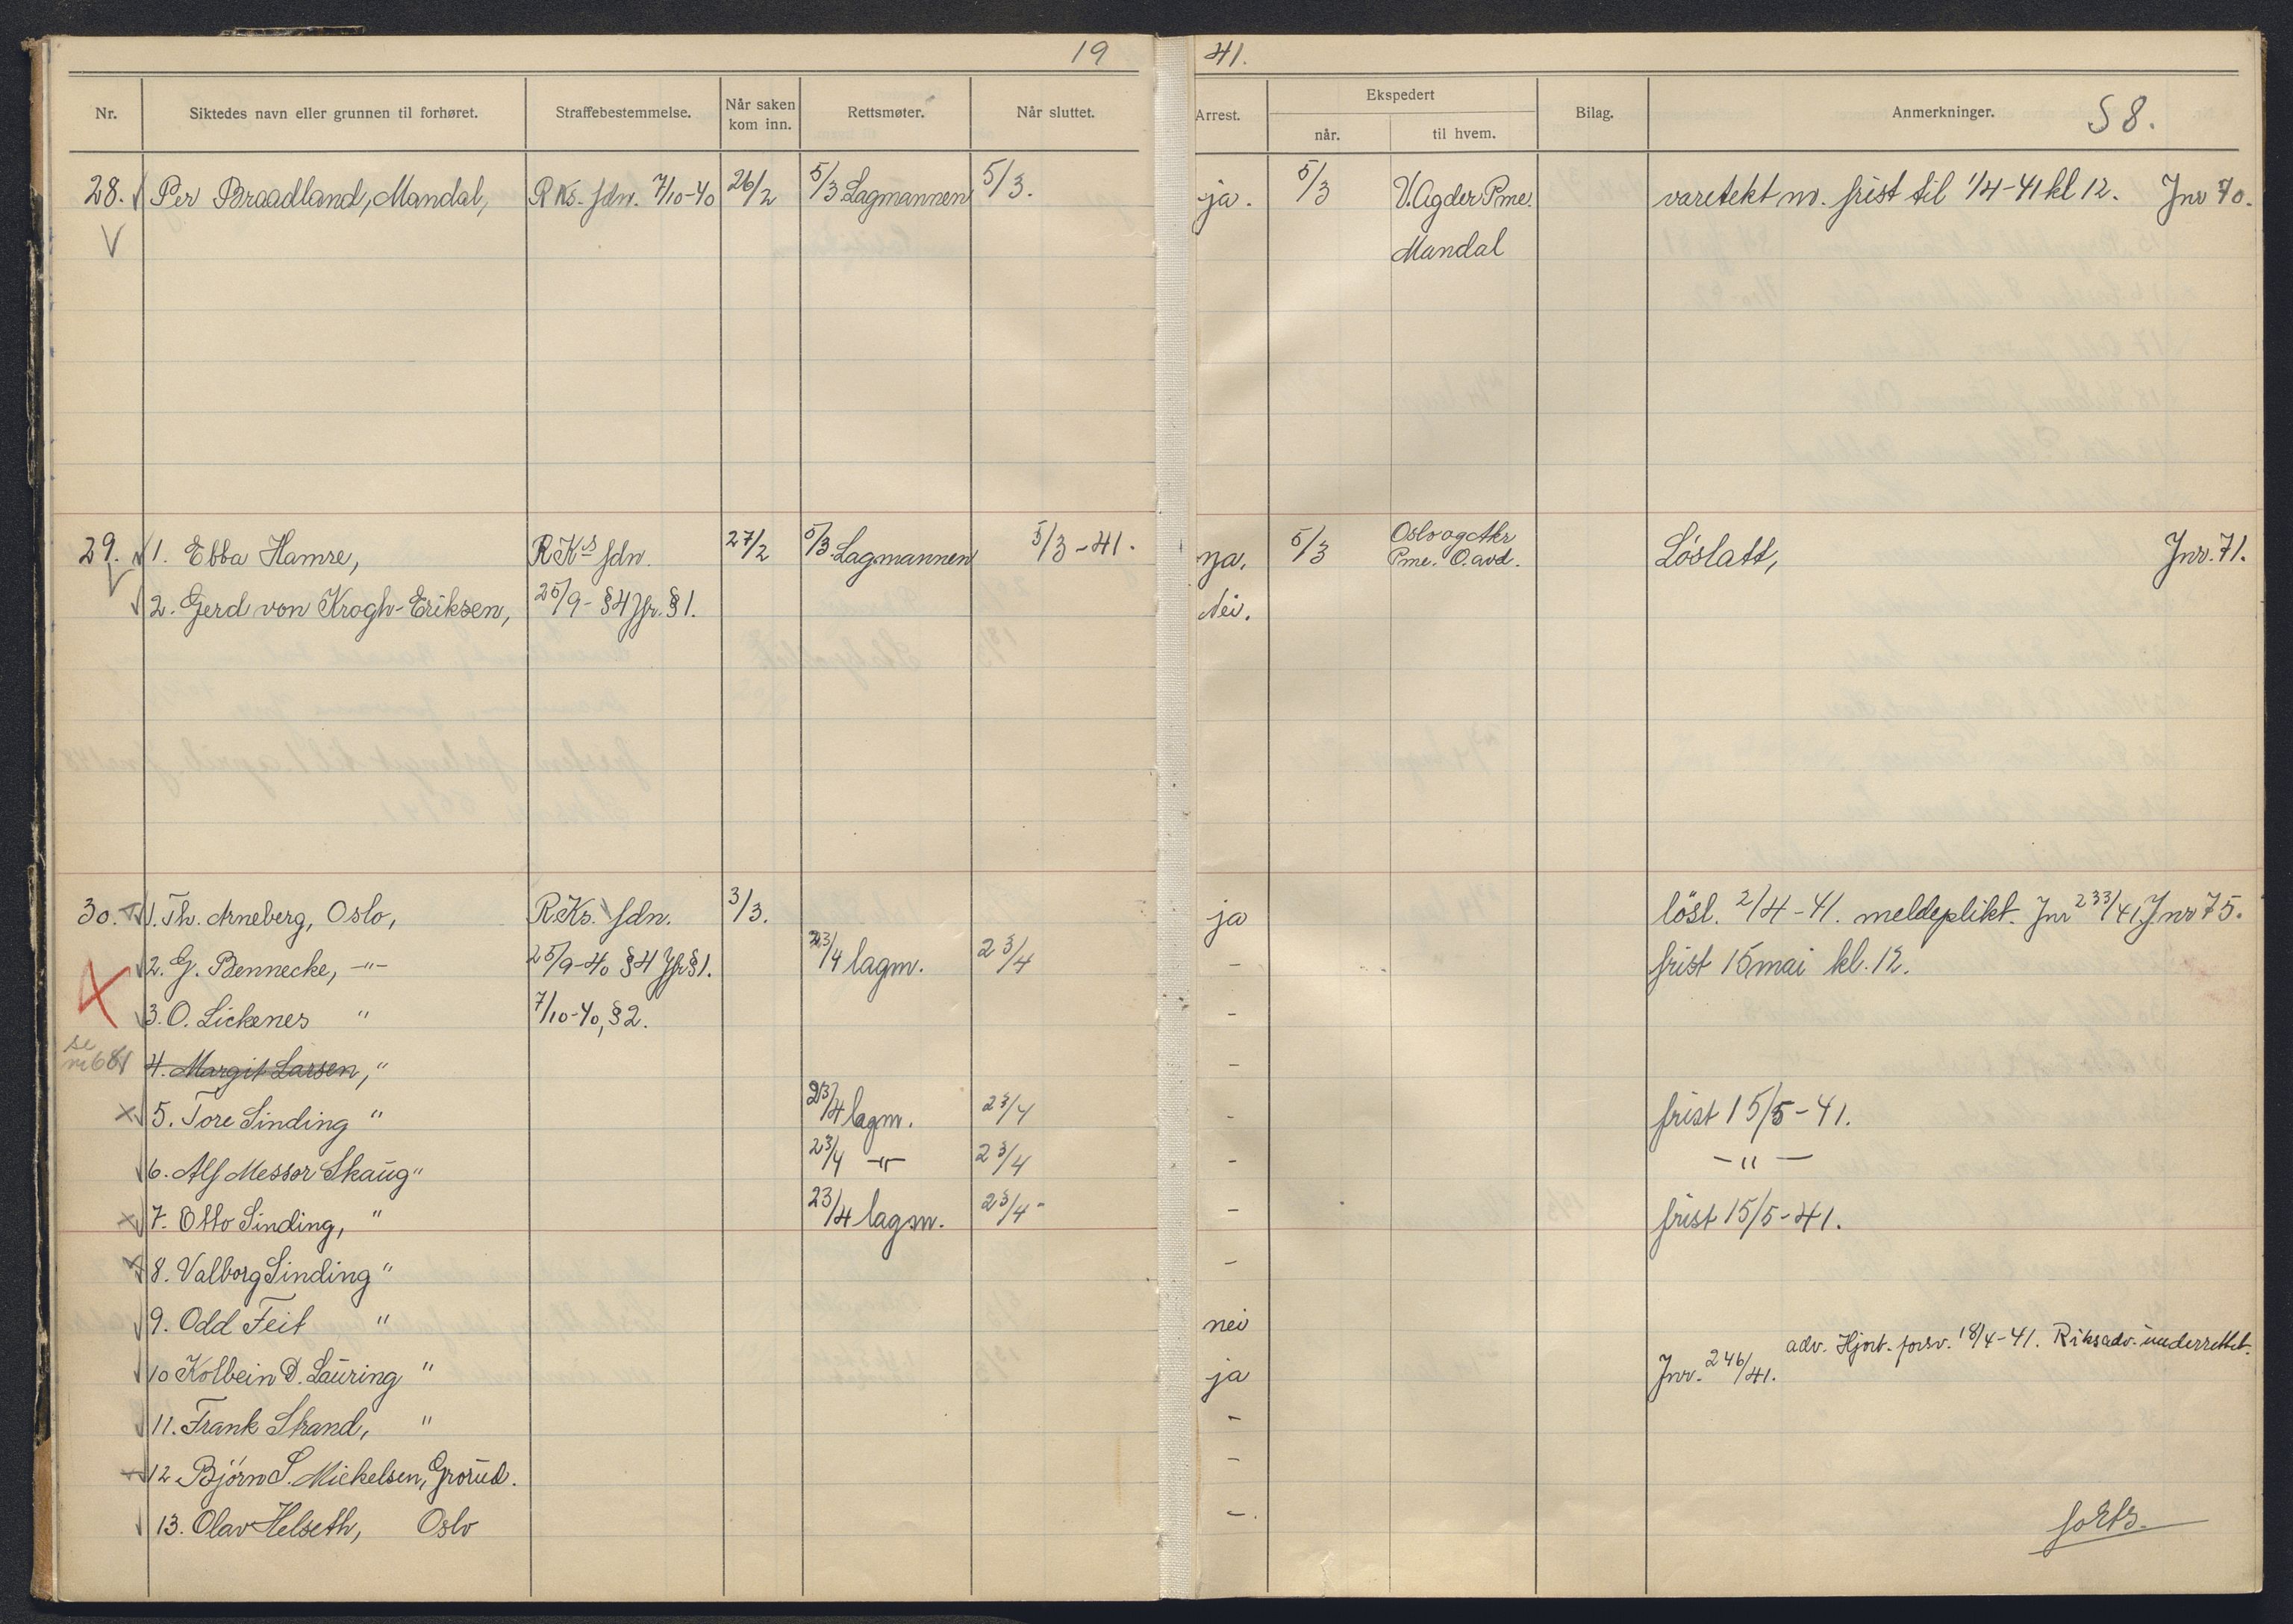 19 41.
Nr. Siktedes navn eller grunnen til forhøret. Straffebestemmelse. Når saken kom inn. Rettsmøter. Når sluttet. Arrest. Ekspedert når. til hvem. Bilag. Anmerkninger. S 8.
28. Per Braadland, Mandal, R Ks. fdn. 7/10-40 26/2 5/3 Lagmannen 5/3. ja. 5/3 V. Agder Pme. varetekt m. frist til 1/4-41 kl 12. Jnr 70.
Mandal
29. 1. Ebba Hamre, R Ks fdn. 27/2 5/3. Lagmannen 5/3-41. ja. 5/3 Oslo og Akr Pme. O. avd. Löslatt, Jnr. 71.
2. Gerd von Krogh-Eriksen, 25/9- §4 Jfr. §1. Nei.
30. 1. Th. Arneberg, Oslo, R.Ks. fdn. 3/3. ja lösl. 2/4-41. meldeplikt. Jnr 233/41 Jnr 75.
2. G. Bennecke, -"- 25/9-40 §4 Jfr §1. 23/4 lagm. 23/4 - frist 15 mai kl. 12.
3. O. Lickenes " 7/10-40, §2. -
se nr 681 4. Margit Larsen, " -
5. Tore Sinding " 23/4 lagm. 23/4 - frist 15/5-41.
6. Alf Messor Skaug " 23/4 -"- 23/4 - -"-
7. Otto Sinding, " 23/4 lagm. 23/4 - frist 15/5-41.
8. Valborg Sinding " -
9. Odd Feit " nei
10 Kolbein D. Lauring " ja Jnr. 246/41. adv. Hjort. forsv. 18/4-41. Riksadv. underrettet.
11. Frank Strand, " -
12 Björn S. Mickelsen, Grorud. -
13. Olav Helseth, Oslo -. forts.